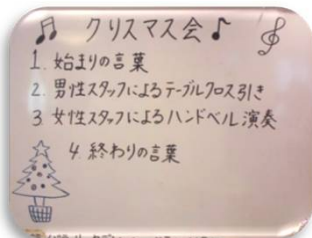 ♬ クリスマス会 ♪
1. 始まりの言葉
2. 男性スタッフによるテーブルクロス引き
3 女性スタッフによるハンドベル演奏
4. 終わりの言葉